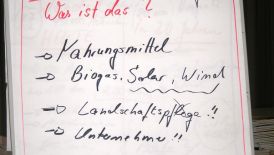 Was ist das?
→ Nahrungsmittel
→ Biogas, Solar, Wind
→ Landschaftspflege!!
→ Unternehmer!!